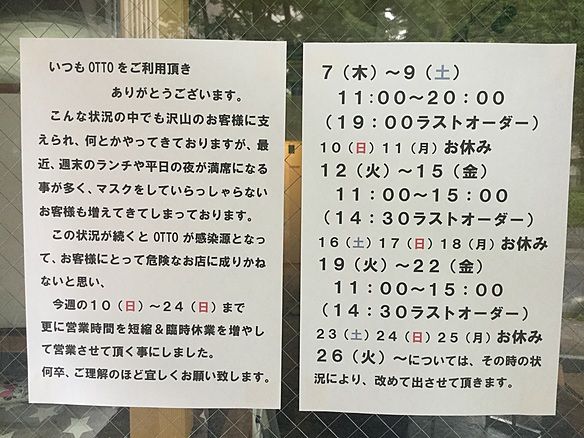 いつもOTTOをご利用頂き
ありがとうございます。
こんな状況の中でも沢山のお客様に支
えられ、何とかやってきておりますが、最
近、週末のランチや平日の夜が満席になる
事が多く、マスクをしていらっしゃらない
お客様も増えてきてしまっております。
この状況が続くとOTTOが感染源となっ
て、お客様にとって危険なお店に成りかね
ないと思い、
今週の10（日）～24（日）まで
更に営業時間を短縮＆臨時休業を増やし
て営業させて頂く事にしました。
何卒、ご理解のほど宜しくお願い致します。
7（木）～9（土）
11:00～20:00
（19:00ラストオーダー）
10（日）11（月）お休み
12（火）～15（金）
11:00～15:00
（14:30ラストオーダー）
16（土）17（日）18（月）お休み
19（火）～22（金）
11:00～15:00
（14:30ラストオーダー）
23（土）24（日）25（月）お休み
26（火）～については、その時の状
況により、改めて出させて頂きます。